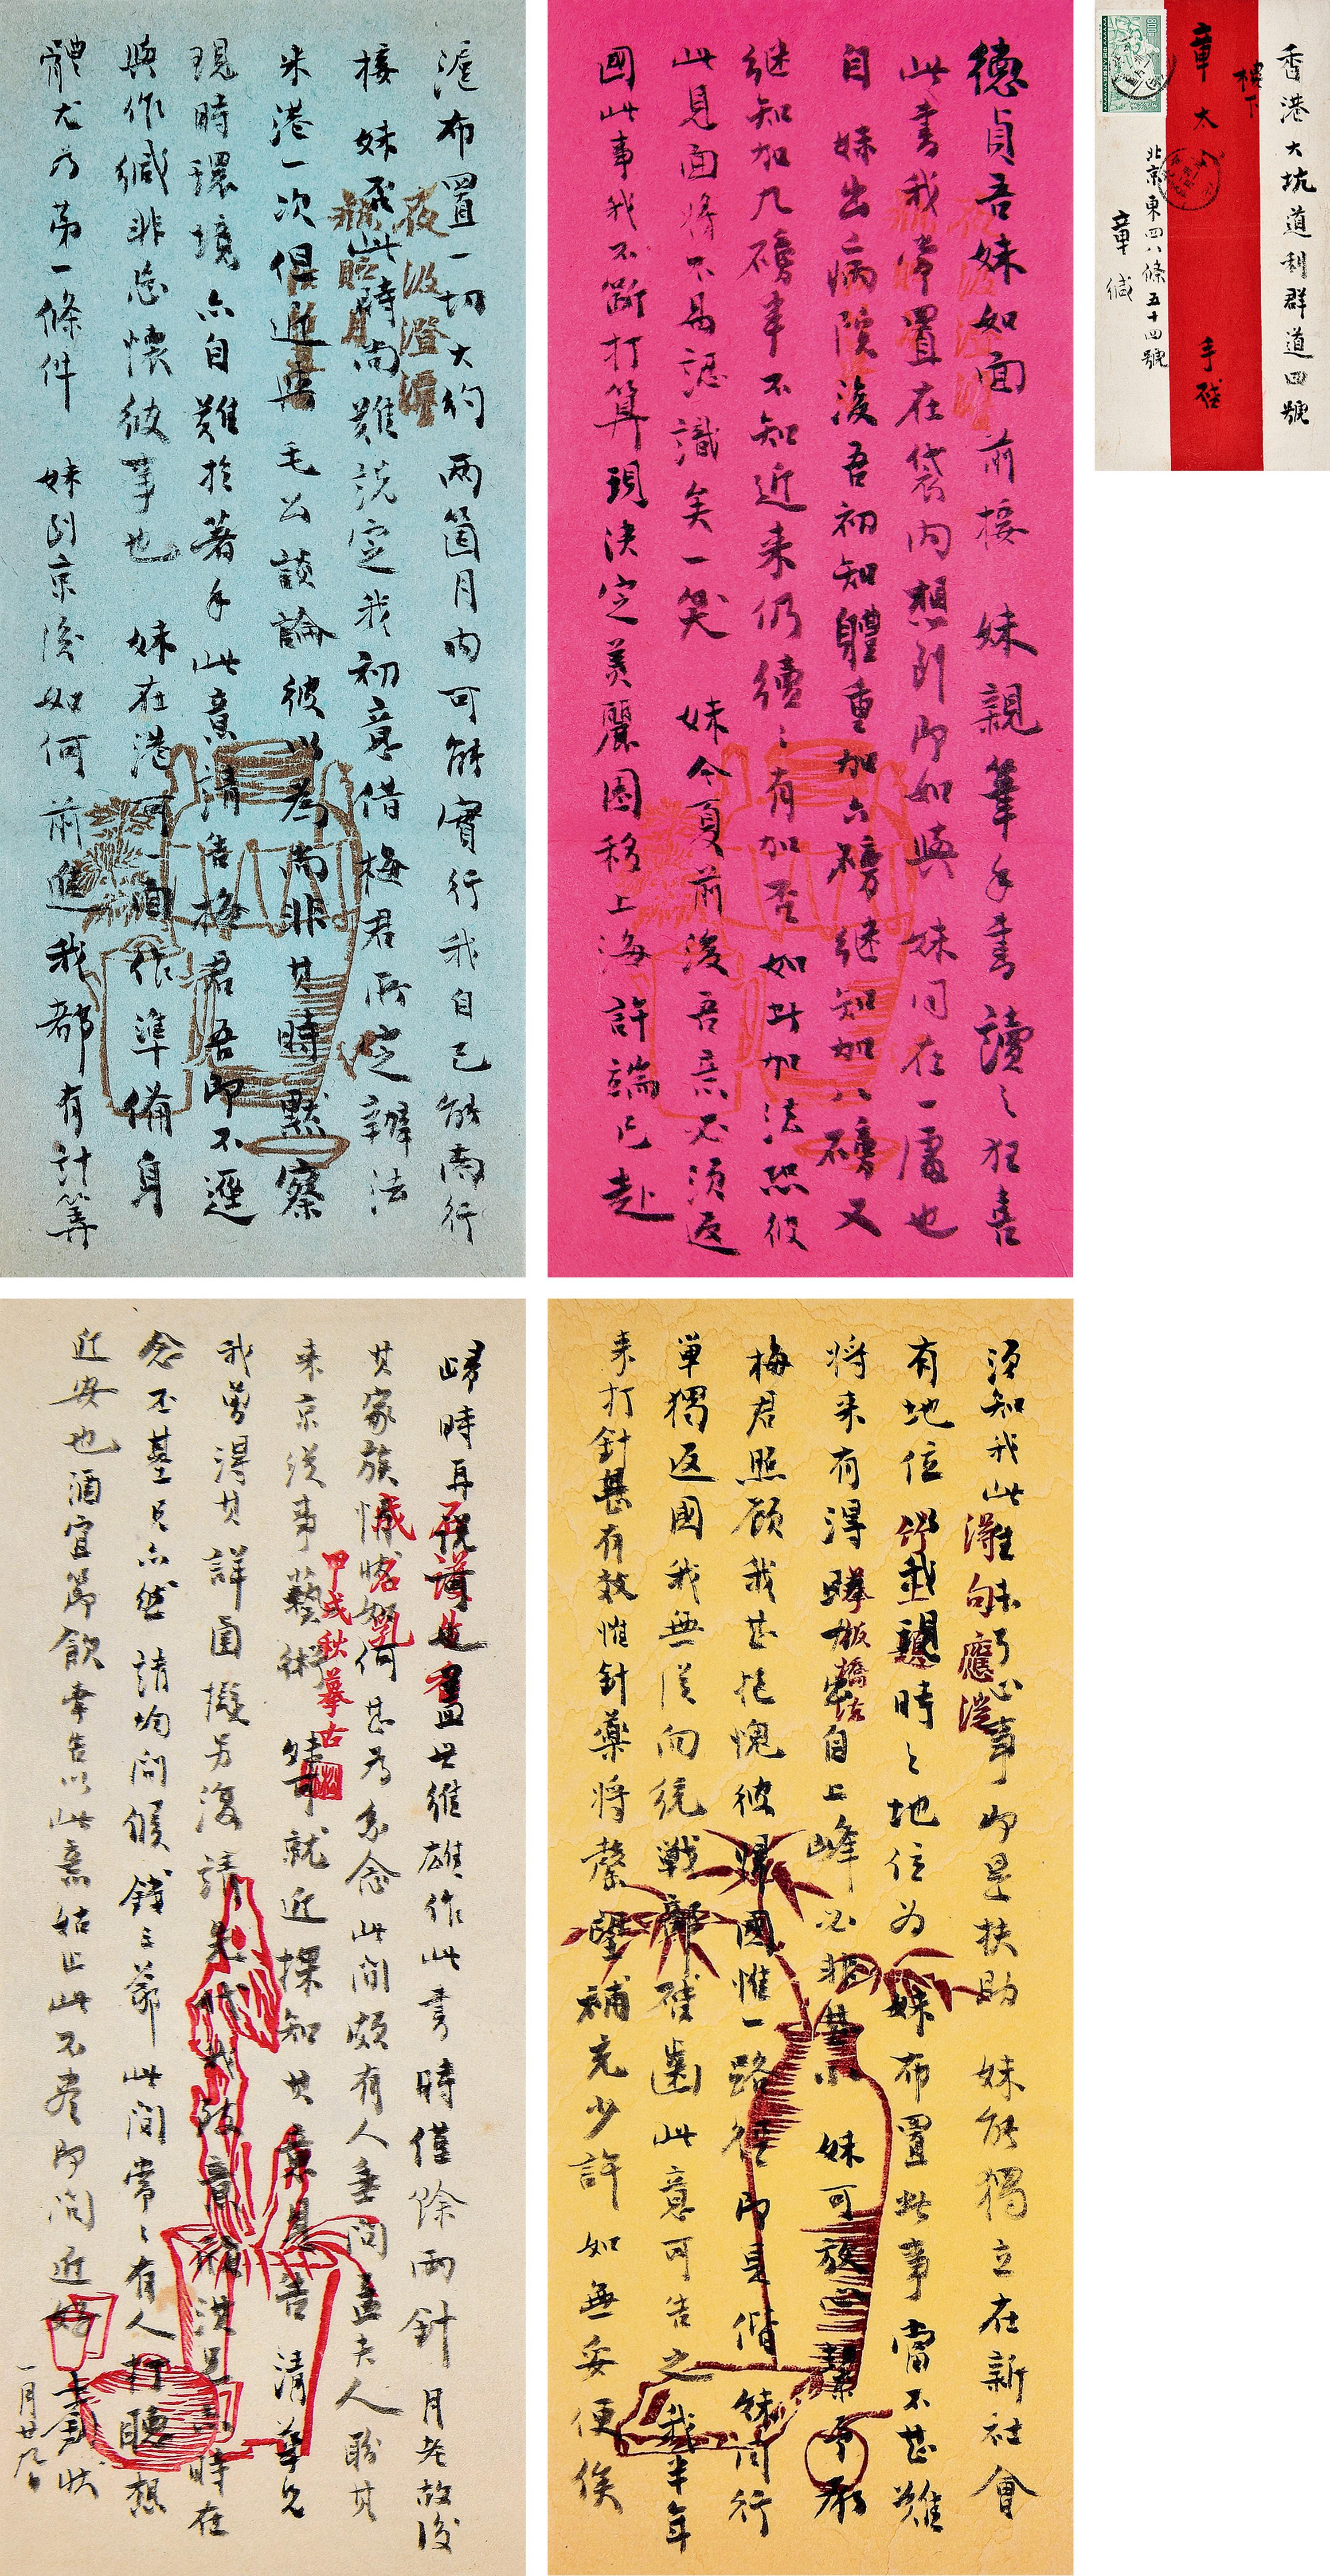 香港大坑道利群道四號
樓下
章太 手啓
北京東四八條五十四號
章緘
德貞吾妹如面 前接 妹親筆手書讀之狂喜
此書我常置在袋内想到即如與 妹同在一處也
自 妹出病院後吾初知體重加六磅继知加八磅又
继知加九磅半不知近来仍續續有加否如此加法恐彼
此見面將不易認識矣一笑 妹今夏前後吾意必須返
國此事我不斷打算現決定美麗園移上海許端已赴
滬布置一切大約兩箇月内可能實行我自己能南行
接 妹否此時尚難説定我初意借梅君所定辦法
来港一次但近與 毛公談論彼以為尚非其時默察
現時環境亦自難於著手此意請告梅君吾即不逕
與作緘非忘懷彼事也 妹在港可一面作準備身
體尤为第一條件 妹到京後如何前進我都有計算
須知我此生未了心事即是扶助 妹能獨立在新社會
有地位我親時之地位为 妹布置此事當不甚難
將来有得自上峰必非甚 妹可放
梅君照顾我甚抱愧彼歸國惟一路徑即是偕 妹同行
單獨返國我無從向統戰部啓齒此意可告之 我半年
来打針甚有效惟針藥將罄望補充少許如無妥便俟
歸時再説 孟世維雄作此書時僅餘兩針 月老故後
其家族情 如何甚为系念此間頗有人垂問孟夫人盼其
来京從事藝術 就近探知其意見告 清華兄
我曾得其詳函擬另復請 代我致意 洪 時在
念丕基兄亦然請均问候錢三爺此間常常有人打聽想
近安也酒宜節飲幸告以此意姑止此不尽即问近好
一月廿九日